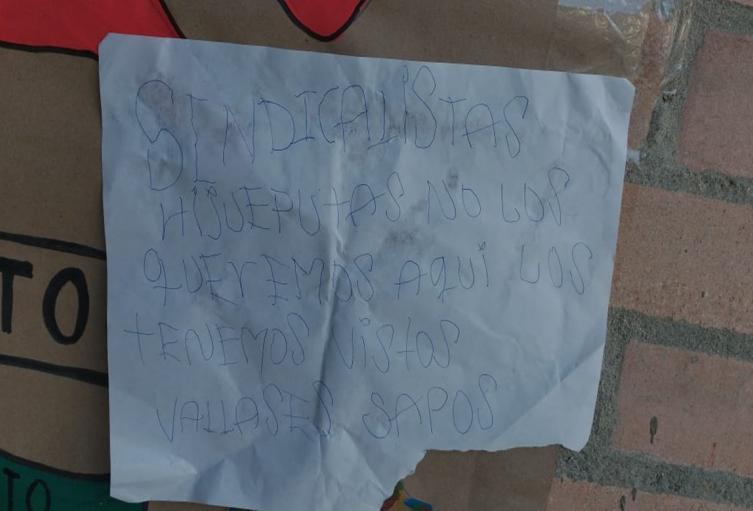 SINDICALISTAS
HIJUEPUTAS NO LOS
QUEREMOS AQUI LOS
TENEMOS VISTOS
VALLASES SAPOS
TO
TO